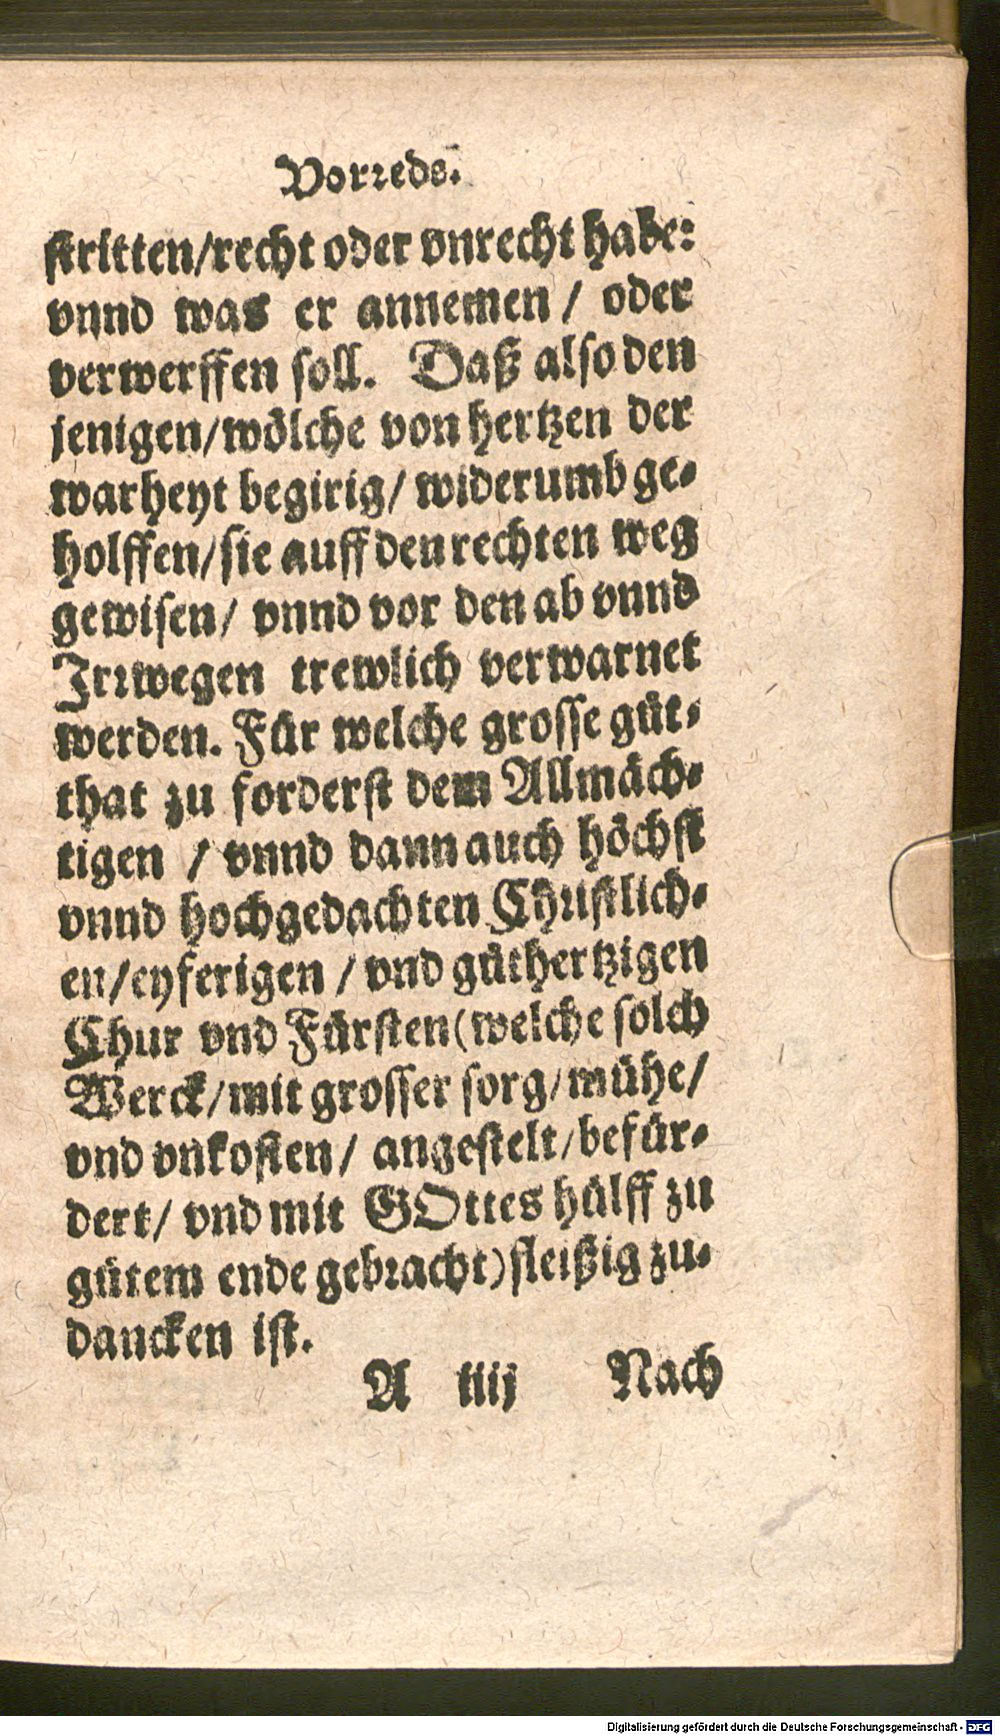 Vorreds.
stritten/recht oder vnrecht habe:
vnnd was er annemen / oder
verwerffen soll. Daß also den
jenigen/wölche von hertzen der
warheyt begirig/ widerumb ge-
holffen/sie auff den rechten weg
gewisen/ vnnd vor den ab vnnd
Irrwegen trewlich verwarnet
werden. Für welche grosse gůt-
that zu forderst dem Allmäch-
tigen / vnnd dann auch höchst
vnnd hochgedachten Christlich-
en/eyferigen / vnd gůthertzigen
Chur vnd Fürsten(welche solch
Werck/mit grosser sorg/mühe/
vnd vnkosten/ angestelt/befür-
dert/ vnd mit GOttes hülff zu
gůtem ende gebracht)fleißig zu-
dancken ist.
A iiij Nach
Digitalisierung gefördert durch die Deutsche Forschungsgemeinschaft - DFG